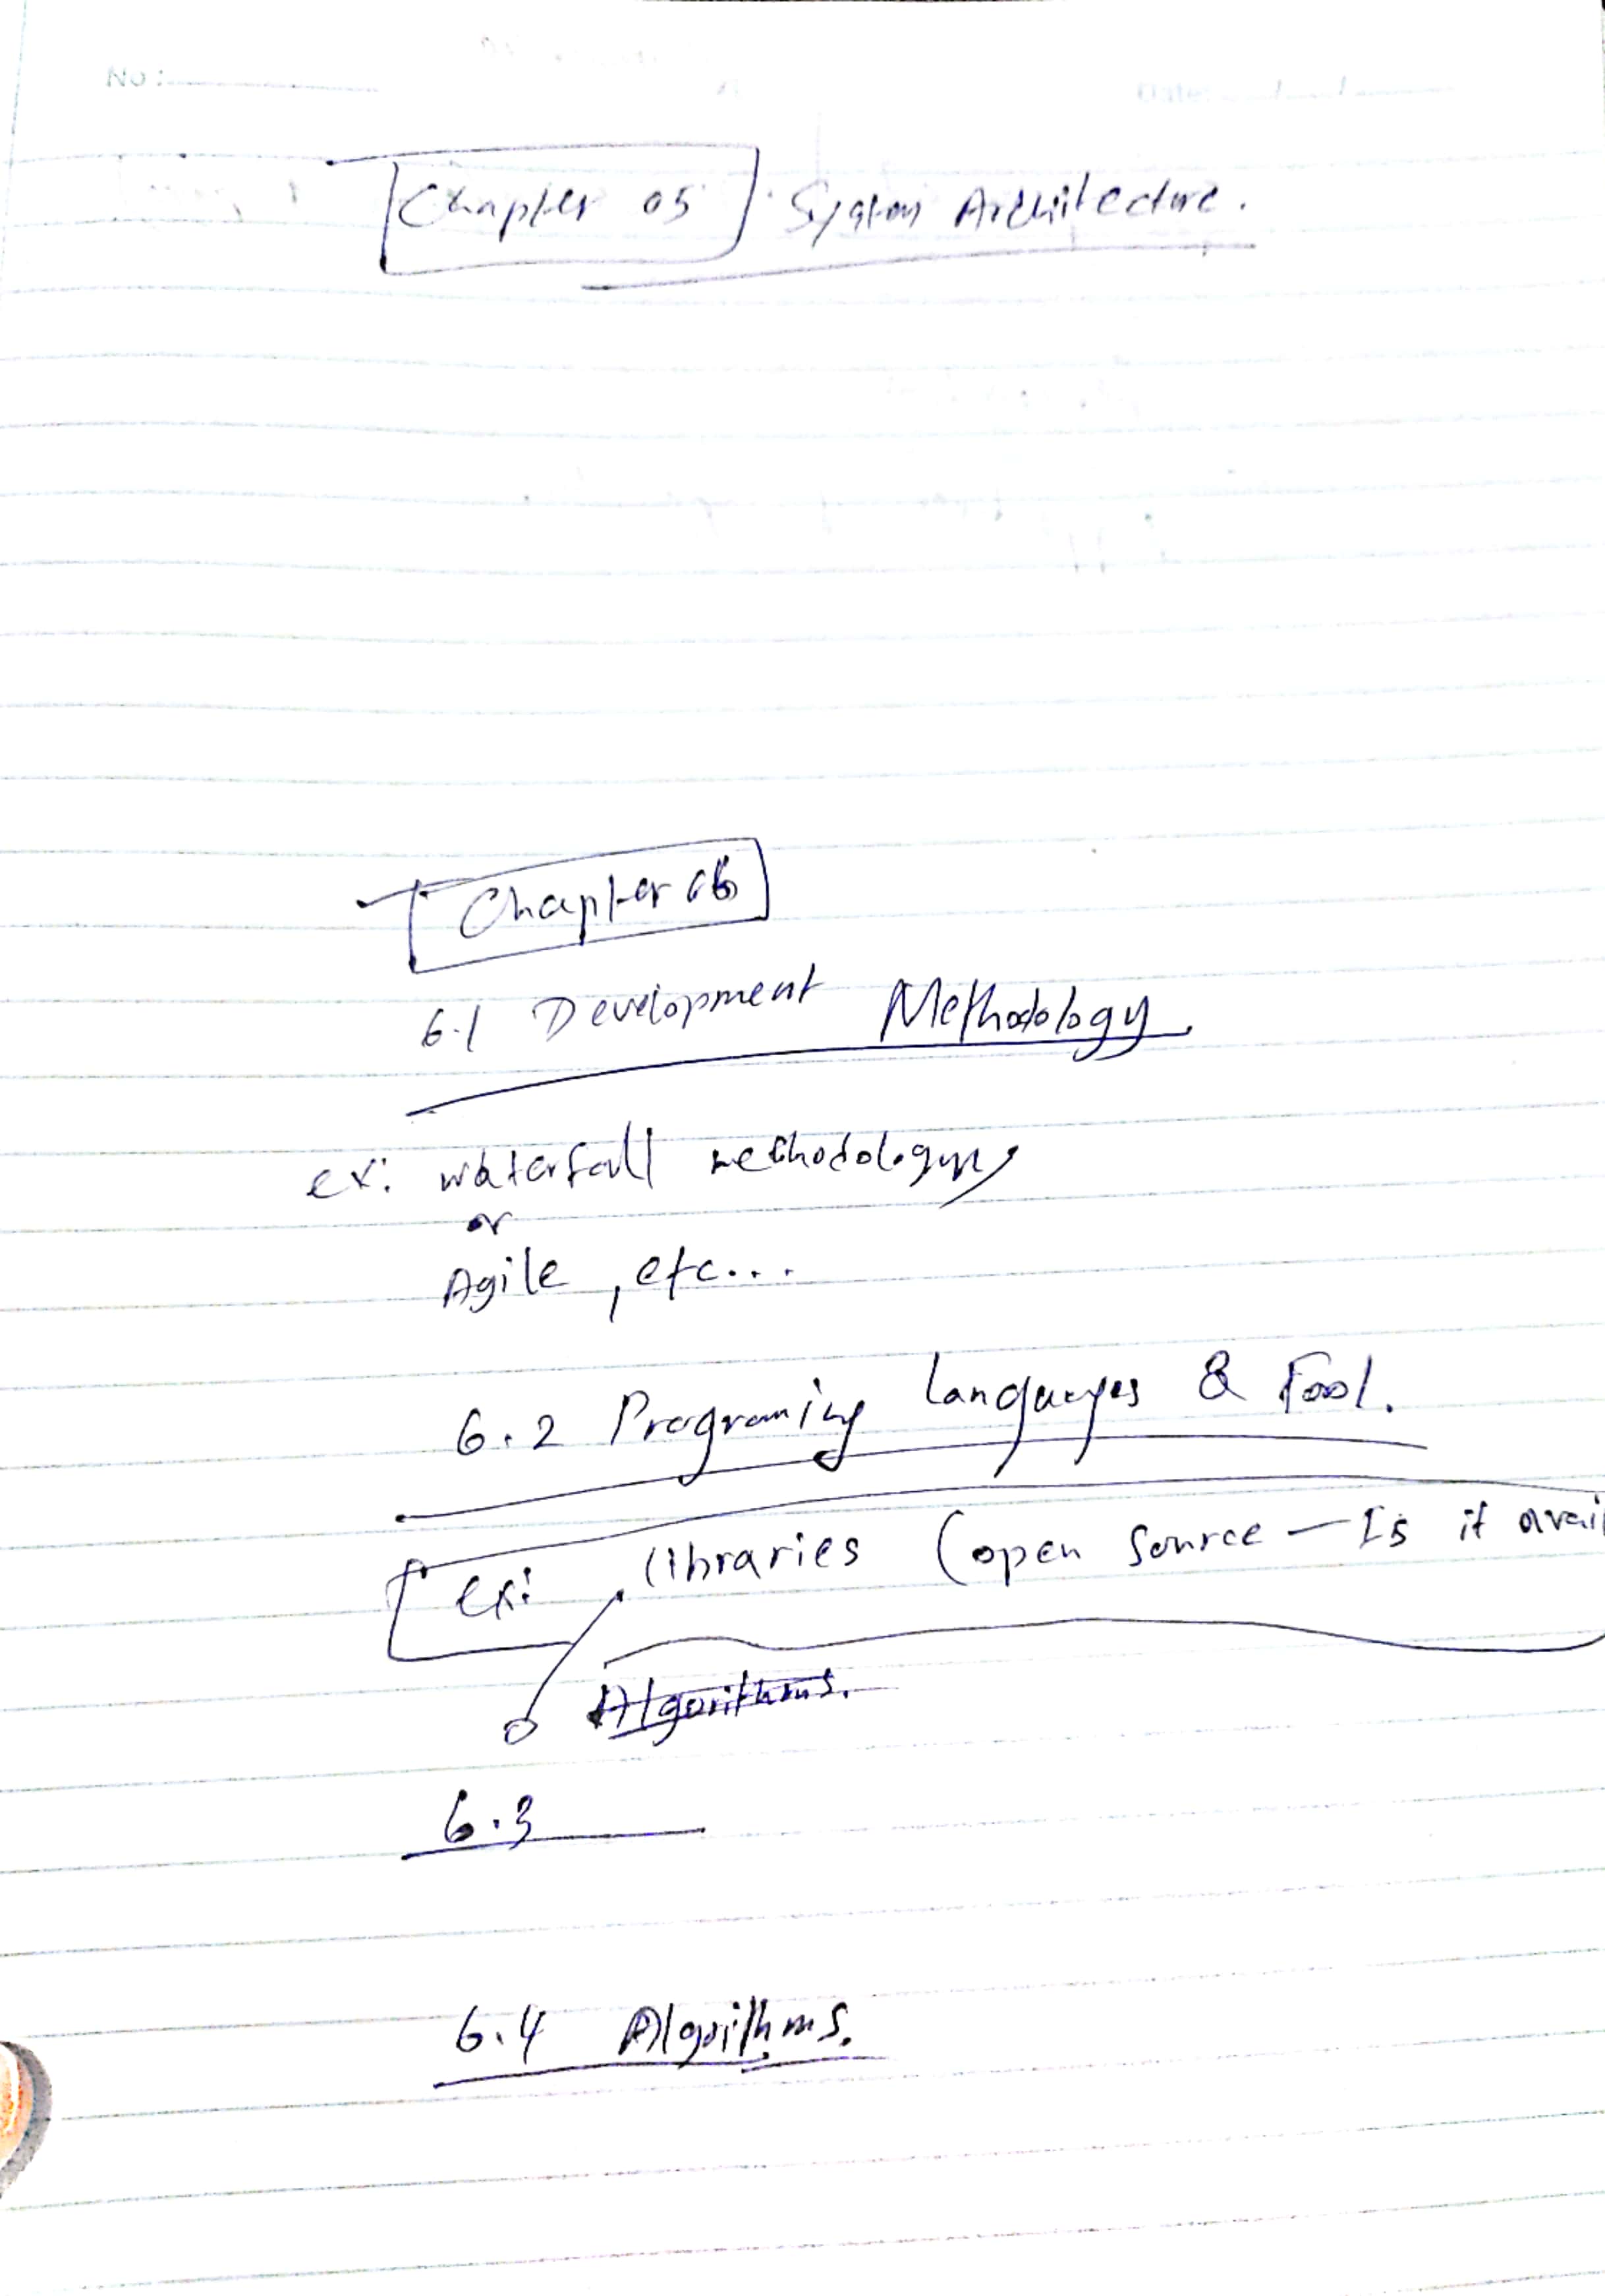 No :
Date:
Chapter 05 : System Architecture.
Chapter 06
6.1 Development Methodology.
ex: waterfall methodology
or
Agile, etc...
6.2 Programing Languages & Tool.
ex: libraries (open source — Is it avai
Algorithms.
6.3
6.4 Algorithms.